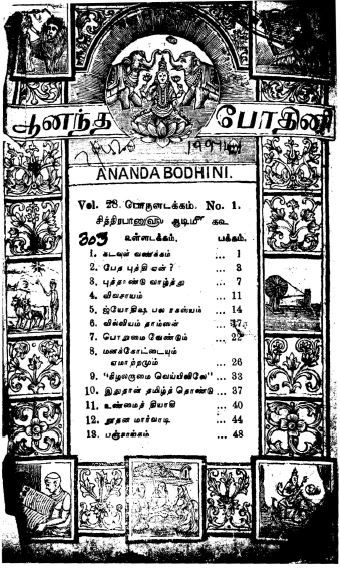 ஆனந்த போதினி
ANANDA BODHINI.
Vol. 28. பொருளடக்கம். No. 1.
சித்திரபானு௵ ஆடிமீ கஉ
303 உள்ளடக்கம். பக்கம்.
1. கடவுள் வணக்கம் ... 1
2. பேத புத்தி ஏன்? ... 3
3. புத்தாண்டு வாழ்த்து ... 7
4. விவசாயம் ... 11
5. ஜ்யோதிஷ பல ரகஸ்யம் ... 14
6. வில்லியம் தாம்ஸன் ... 17
7. பொறுமை வேண்டும் ... 22
8. மனக்கோட்டையும்
ஏமாற்றமும் ... 26
9. "நிழலருமை வெயிலிலே" ... 33
10. இதுதான் தமிழ்த் தொண்டு ... 37
11. உண்மைத் தியாகி ... 40
12. நூதன மார்வாடி ... 44
13. பஞ்சாங்கம் ... 48